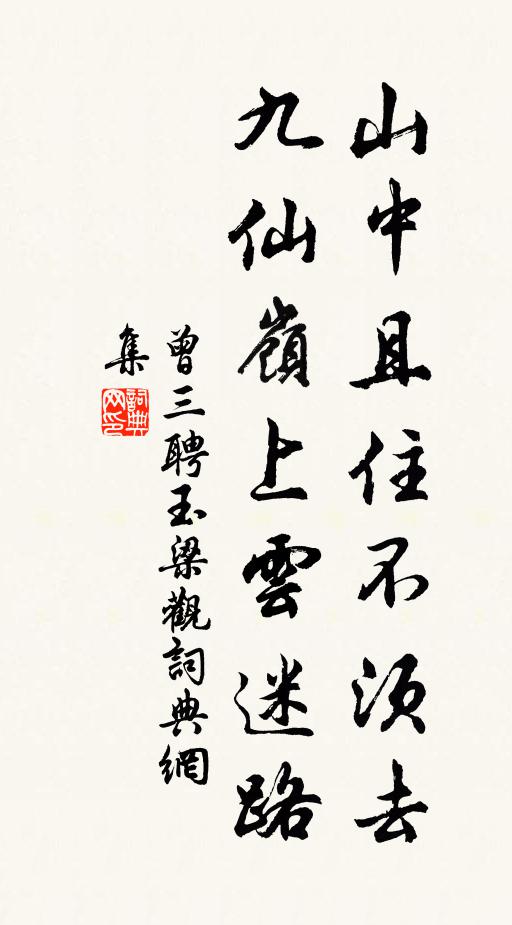 山中且住不須去
九仙嶺上雲迷路
曾三聘玉梁觀詞典網
集
詞典
网印